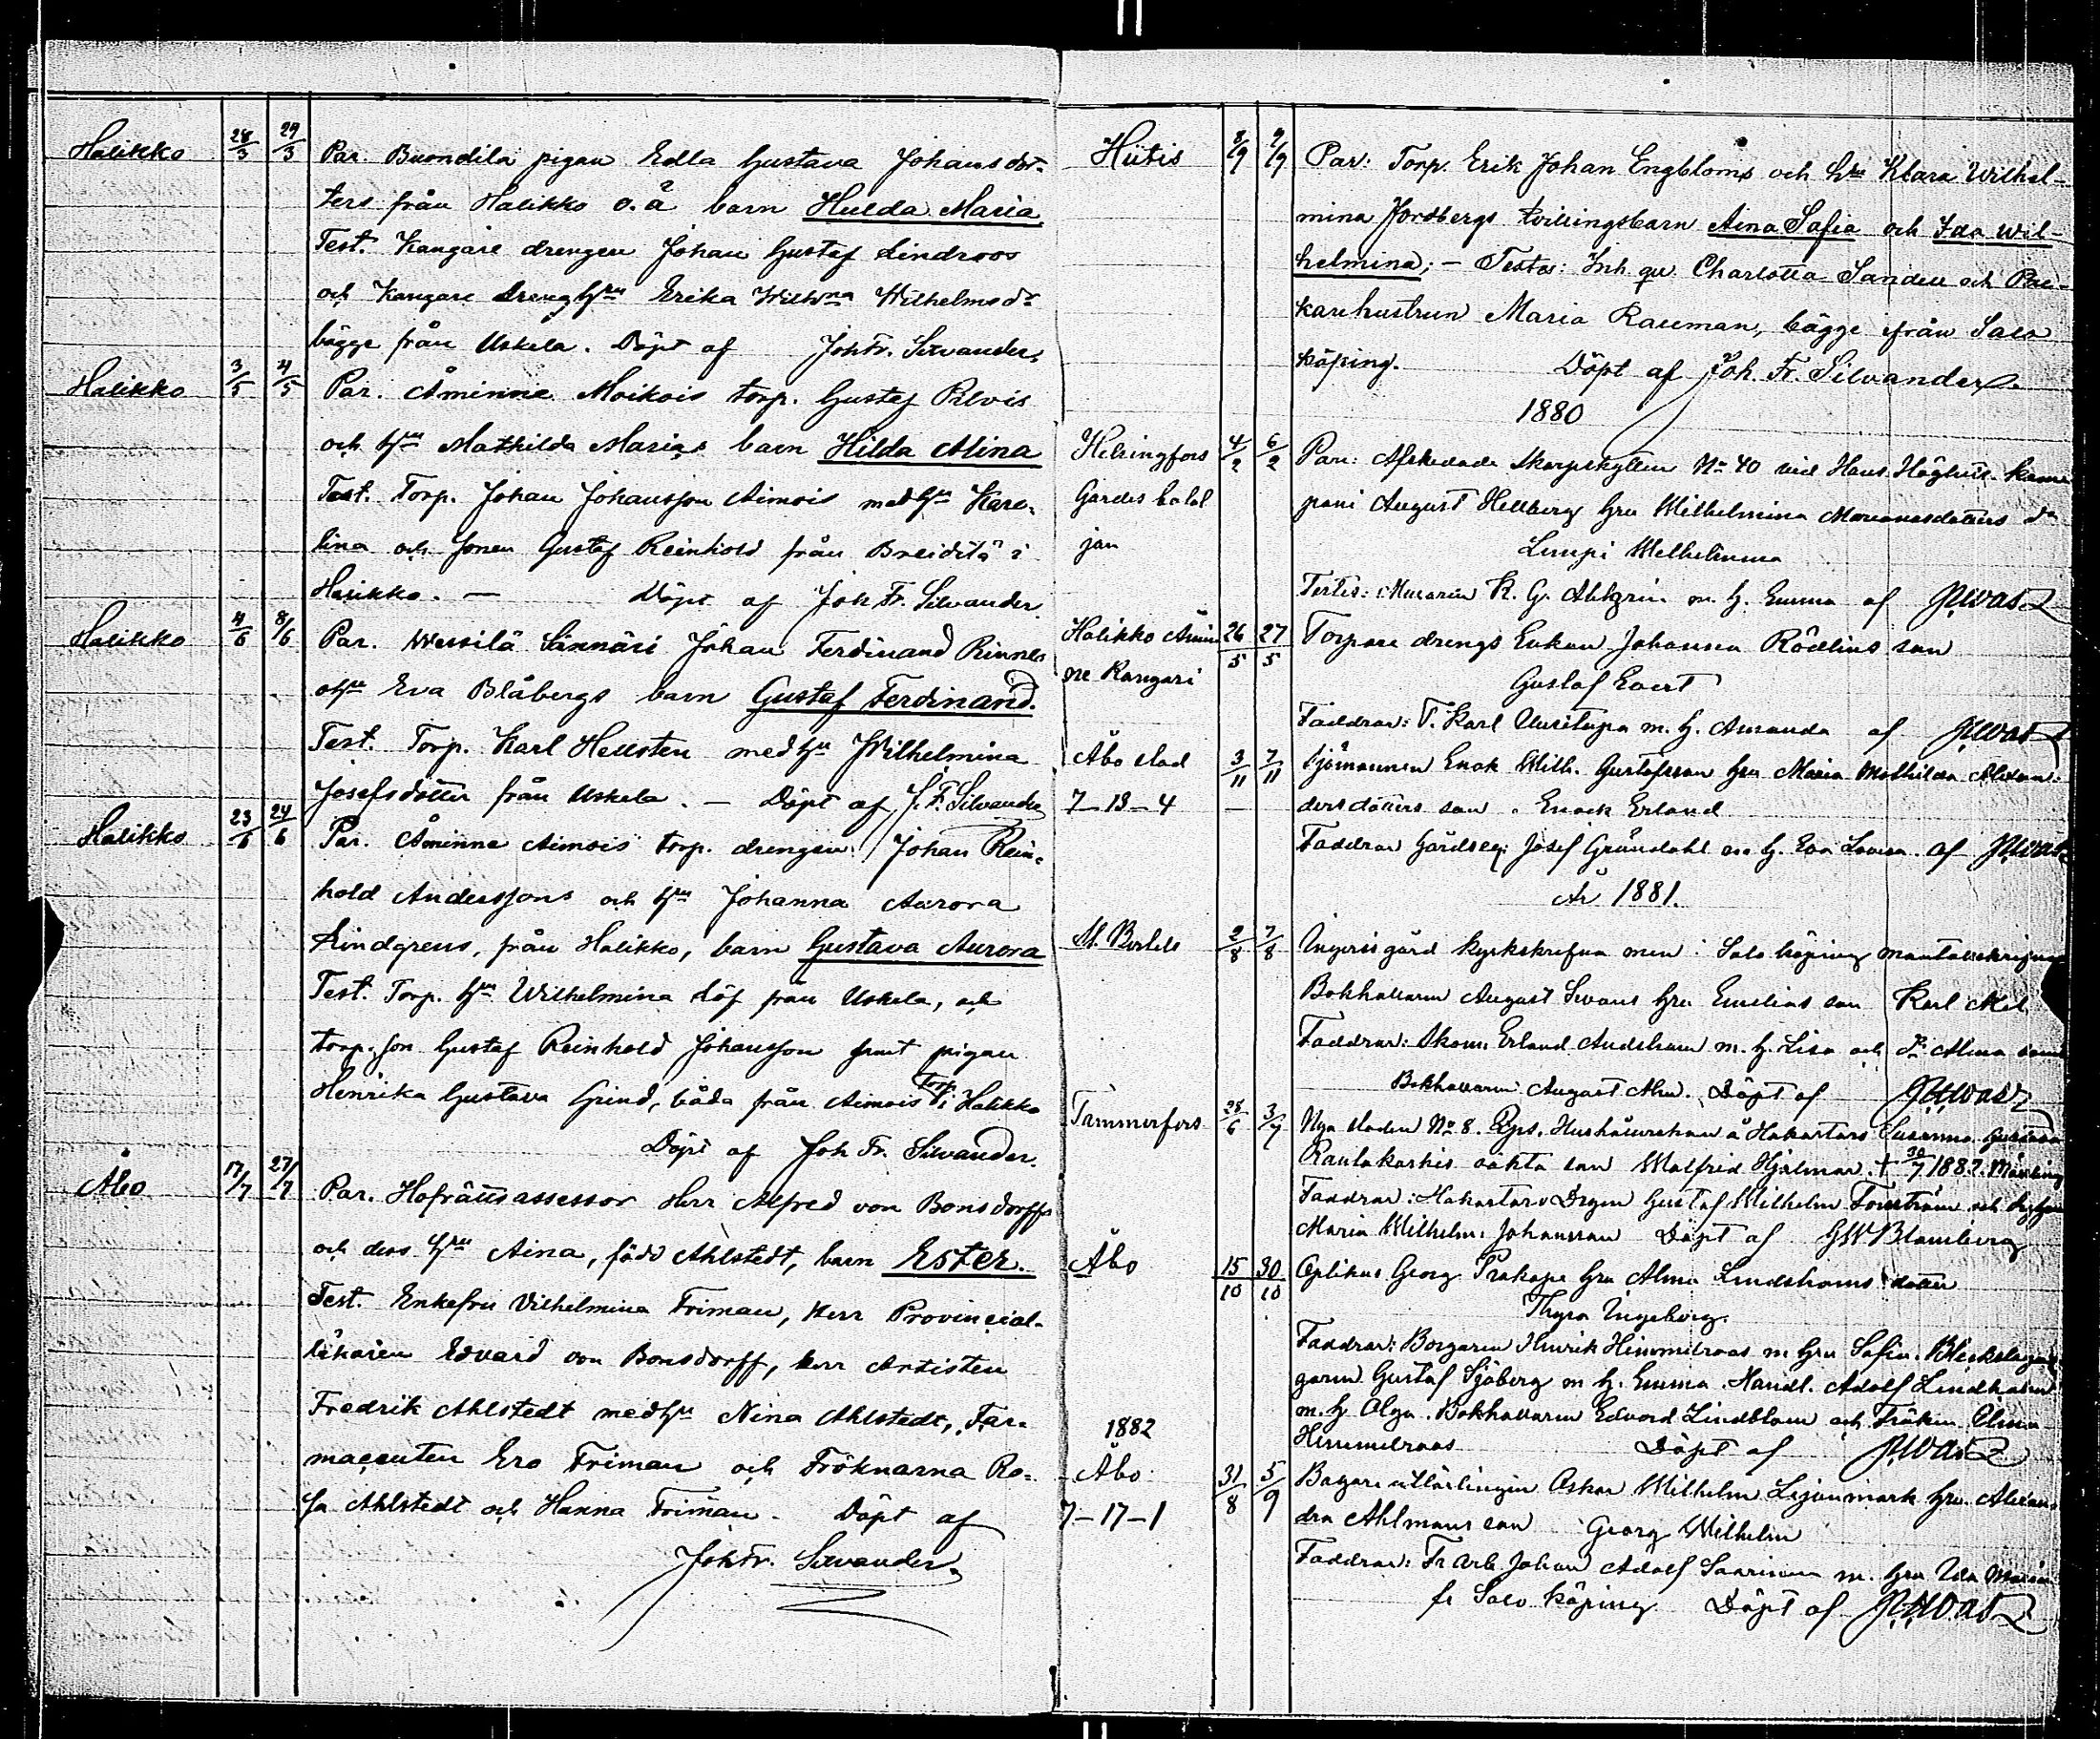 Halikko 28/3 29/3 Par. Buondila pigan Edla Gustava Johansdot-
ters från Halikko o.ä barn Hulda Maria
Test. Kangare drengen Johan Gustaf Lindroos
och Kangare drenghru Erika Wilhna Wilhelmsdr
bägge från Uskela. Döpt af Joh Fr. Silvander.
Halikko 3/5 4/5 Par. Åminne Moikois torp. Gustaf Pilvis
och hru Mathilda Marias barn Hilda Alina
Test. Torp. Johan Johansson Aimois med hru Karo-
lina och sonen Gustaf Reinhold från i
Halikko. — Döpt af Joh Fr. Silvander
Halikko 4/6 8/6 Par. Wessilä Johan Ferdinand Rinnes
o hru Eva Blåbergs barn Gustaf Ferdinand.
Test. Torp. Karl Hellsten med hu Wilhelmina
Josefsdotter från Uskela. — Döpt af J. F. Silvander
Halikko 23/6 24/6 Par. Åminne Aimois torp. drengen Johan Rein-
hold Anderssons och hru Johanna Aurora
Lindgrens, från Halikko, barn Gustava Aurora
Test. Torp. hru Wilhelmina Löf från Uskela, och
torp. son Gustaf Reinhold Johansson samt pigan
Henrika Gustava Grind, båda från Aimois torp i Halikko
Döpt af Joh Fr. Silvander.
Åbo 17/7 27/7 Par. Hofrättsassessor Herr Alfred von Bonsdorffs
och dess hru Aina, född Ahlstedt, barn Ester.
Test. Enkefru Vilhelmina Friman, Herr Provincial-
läkaren Edvard von Bonsdorff, herr Artisten
Fredrik Ahlstedt med hru Nina Ahlstedt, Far-
maceuten Ero Friman och Fröknarna Ro-
sa Ahlstedt och Hanna Friman. Döpt af
Joh Fr. Silvander
Hiitis 8/9 9/9 Par: Torp. Erik Johan Engbloms och hru Klara Wilhel-
mina Nordbergs tvillingsbarn Aina Sofia och Ida Wil-
helmina; — Testes: Inh. qv. Charlotta Sandell och
hustrun Maria Rauman, bägge ifrån Salo
köping. Döpt af Joh. Fr. Silvander
1880
Helsingfors 4/2 6/2 Par: Afskedade skarpskytten No 40 vid Hans Höghets kom-
Gardes batal pani August Hellberg hru Wilhelmina dr
jon Lempi Wilhelmina
Testes: K. G. Ahlgrén m. h. Emma af
Halikko Åmin 26/5 27/5 Torpare drengs Enkan Johanna Rödlins son
ne Kangari Gustaf Evert
Faddrar: T. Karl Uusitupa m. h. Amanda af
Åbo stad 3/11 7/11 Sjömannen Enok Wilh. Gustafsson hru Maria Mathilda Alexan-
7-13-4 — dersdotters son. Enock Erland
Faddrar Gårdseg: Josef Gröndahl m. h. Eva Lovisa. af
År 1881.
St. Bertils 2/8 7/8 Ingeris gård kyrkskrefna men i Salo köping mantalsskrifna
Bokhållaren August Swans hru Emelias son Karl Axel
Faddrar: Skom. Erland Andelson m. h. Lisa och Alma samt
Bokhållaren August Alm. Döpt af
Tammerfors 28/6 3/7 Nya staden No 8. Susanna Gustava
Rautakoskis oäkta son Walfrid Hjalmar. + 30/7 1882.
Faddrar: Drgen Gustaf Wilhelm och
Maria Wilhelm: Johansson Döpt af GW Blomberg
Åbo 15/10 30/10 Optikus Georg Prokope hru Alma Lindholms dotter
Thyra Ingeborg.
Faddrar: Borgaren Henrik Himmelroos m hru Sofia.
garen Gustaf Sjöberg m h. Emma. Handl. Adolf Lindholm
m. h Olga. Bokhållaren Edvard Lindblom och Fröken Elma
Himmelroos Döpt af
1882
Åbo 31/8 5/9 Bagare utlärlingen Oskar Wilhelm hru Alexan-
7-17-1 dra Ahlmans son Georg Wilhelm
Faddrar: Fr Arb. Johan Adolf Saarinen m. hru Ida Maria
fr Salo köping Döpt af